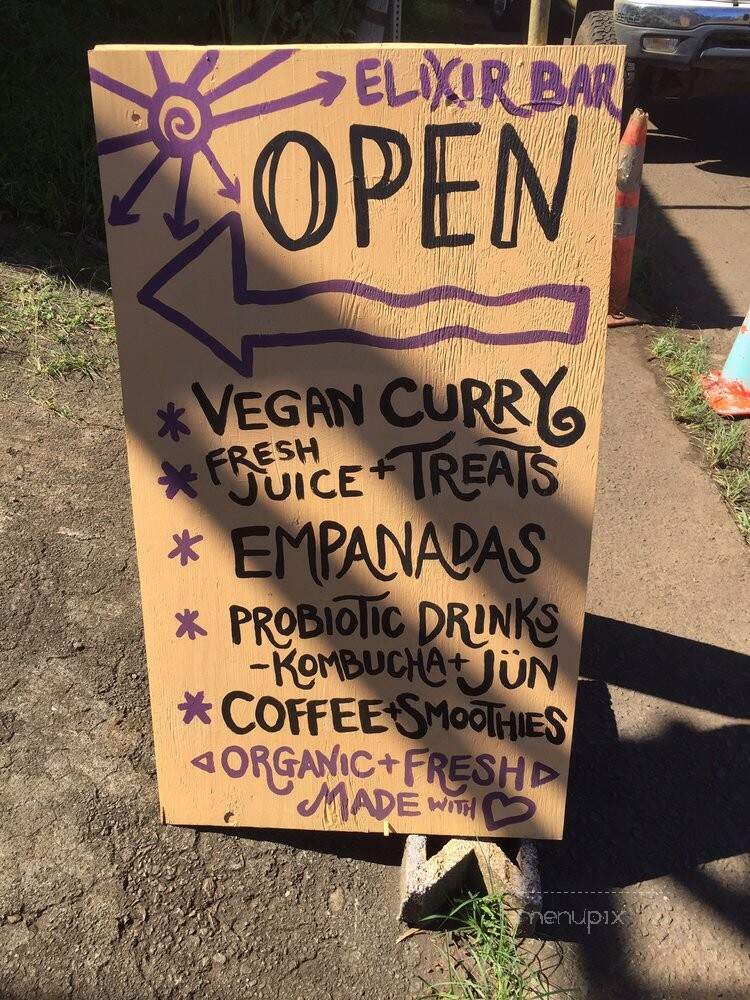 ELIXIR BAR
OPEN
* VEGAN CURRY
* FRESH
JUICE + TREATS
* EMPANADAS
* PROBIOTIC DRINKS
- KOMBUCHA + JÜN
* COFFEE + SMOOTHIES
ORGANIC + FRESH
MADE WITH ♡
menupix